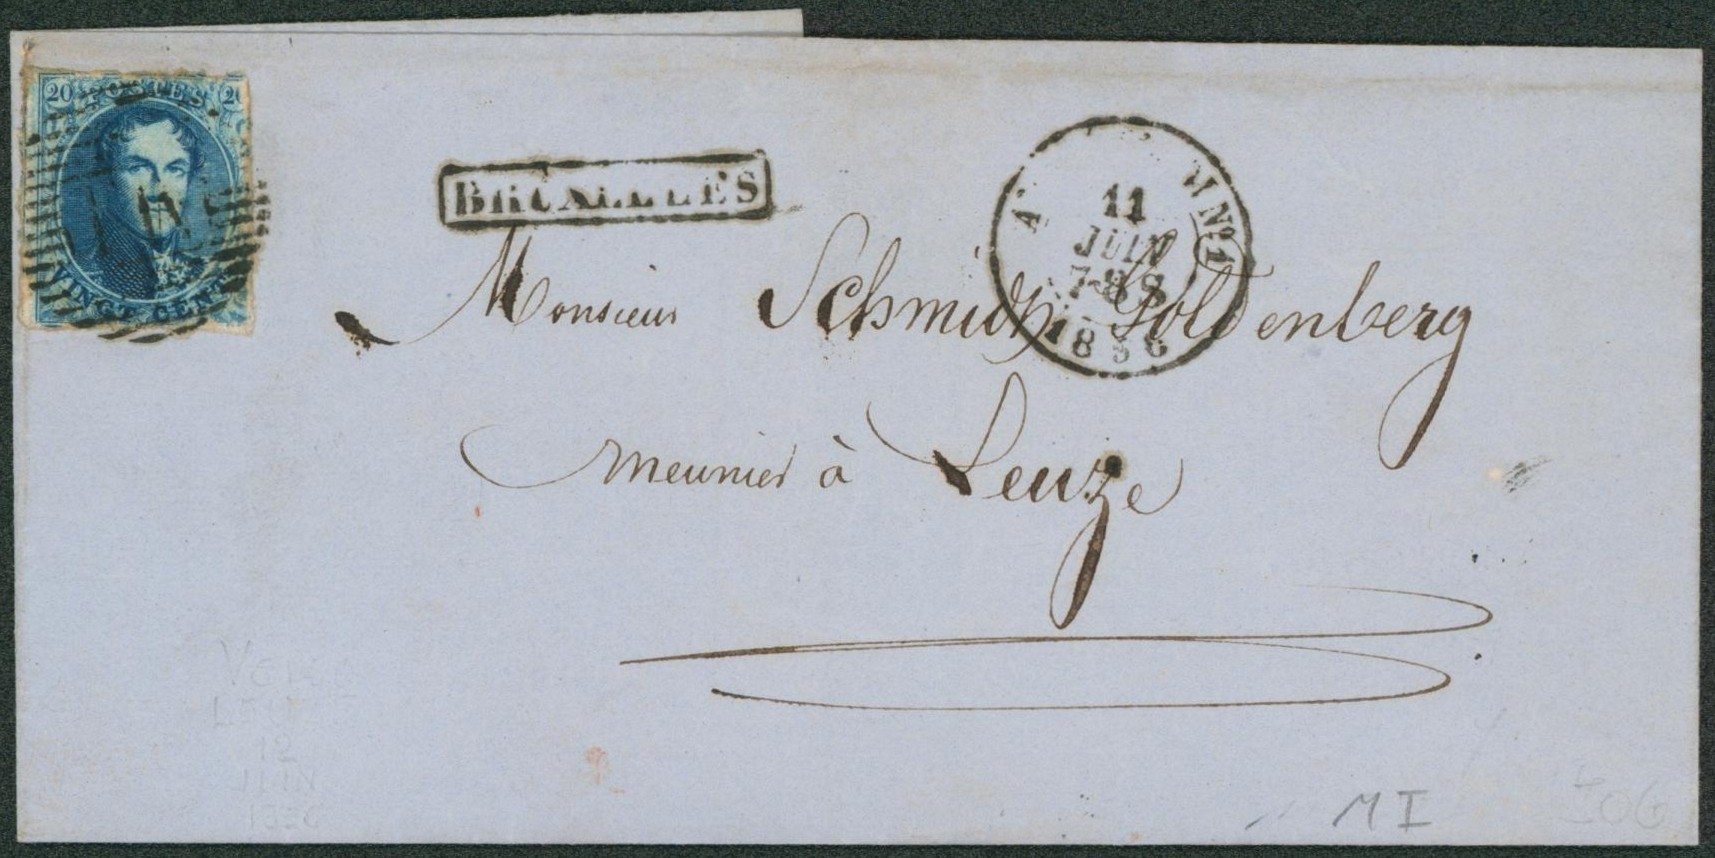 20 POSTES. 20
VINGT CENT
BRUXELLES
M Nº1
11
JUIN
7-8 S
1856
Monsieur Schmidt Goldenberg
meunier à Leuze
12
JUIN
M I